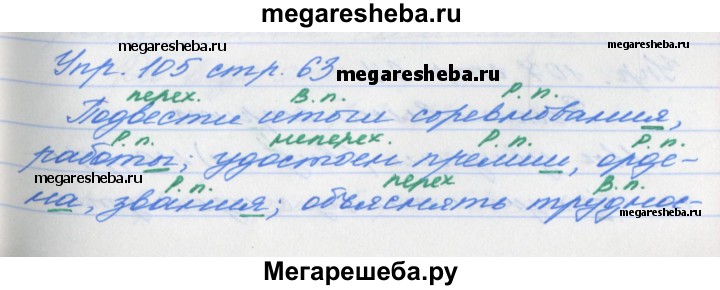 megaresheba.ru
megaresheba.ru megaresheba.ru
Упр. 105 стр. 63
перех. В.п. Р.п.
Подвести итоги соревнования,
Р.п. неперех. Р.п. Р.п.
работы; удостоен премии, орде-
megaresheba.ru
Р.п. перех В.п.
на, звания; объяснять труднос-
megaresheba.ru
Мегарешеба.ру